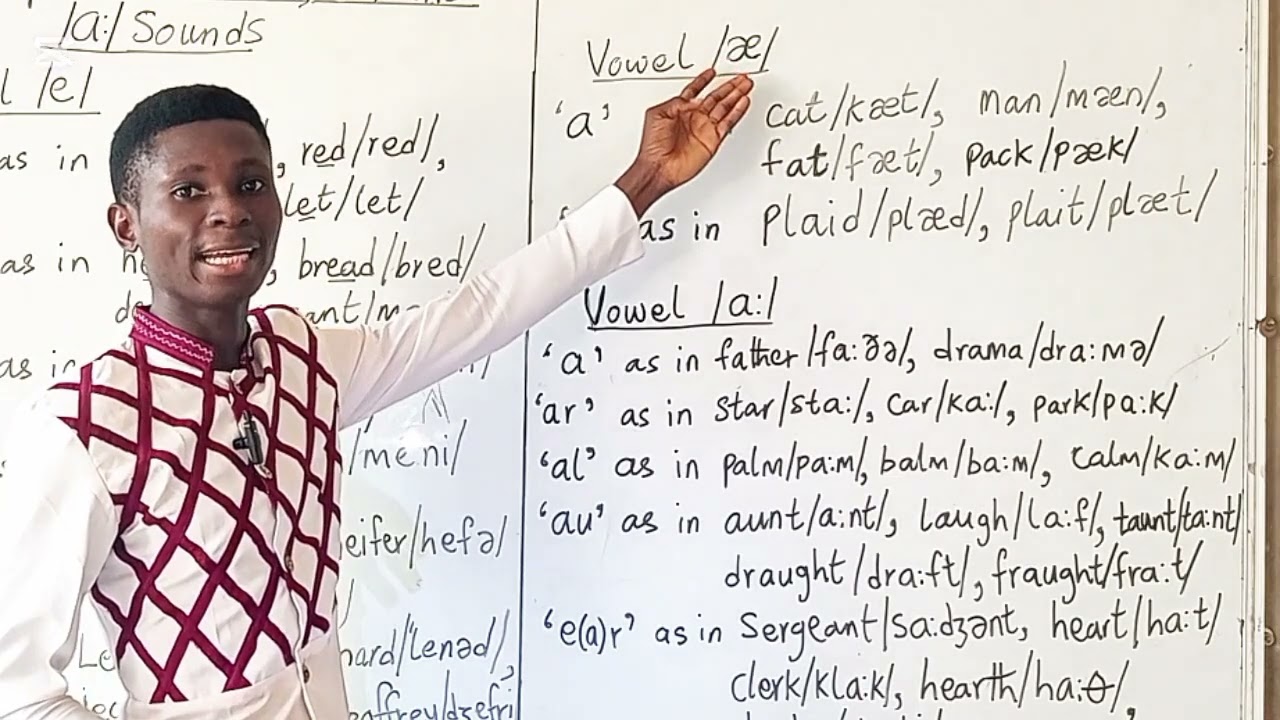 /a:/ Sounds
l /e/
as in , red/red/,
let/let/
as in , bread/bred/
as in
/meni/
eifer/hefə/
hard/lenəd/,
effrey/dʒefri
Vowel /æ/
'a' cat/kæt/, man/mæn/,
fat/fæt/, pack/pæk/
as in Plaid/plæd/, plait/plæt/
Vowel /a:/
'a' as in father/fa:ðə/, drama/dra:mə/
'ar' as in star/sta:/, car/ka:/, park/pa:k/
'al' as in palm/pa:m/, balm/ba:m/, calm/ka:m/
'au' as in aunt/a:nt/, laugh/la:f/, taunt/ta:nt/
draught/dra:ft/, fraught/fra:t/
'e(a)r' as in Sergeant/sa:dʒənt, heart/ha:t/
clerk/kla:k/, hearth/ha:θ/,